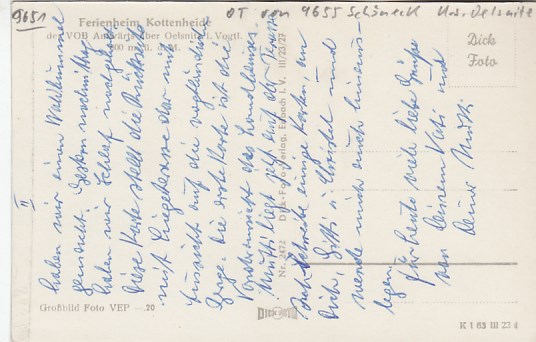 9651
OT von 9655 Schöneck Krs. Oelsnitz
Ferienheim Kottenheide
der VOB Auswärts über Oelsnitz i. Vogtl.
800 m ü. d. M.
Dick
Foto
II
haben wir einen Waldbummel
gemacht. Gestern nachmittag
haben wir Schlaf nachgeholt.
Diese Karte stellt die Rückseite
mit Liegeterrasse dar mit
Aussicht auf die vogtländischen
Berge. Die erste Karte ist die
Vorderansicht des Landhauses.
Mutti liegt jetzt auf der Terrasse
Ich schreibe einige Karten, an
Dich, und
werde mich auch hinaus-
legen.
Für heute viele liebe Grüße
von Deinem Vati und
Deiner Mutti
Nr. 2472 Dick-Foto-Verlag, Erlbach i. V. III/23/27
Großbild Foto VEP -.20
DICK FOTO
K 1 63 III 23 d